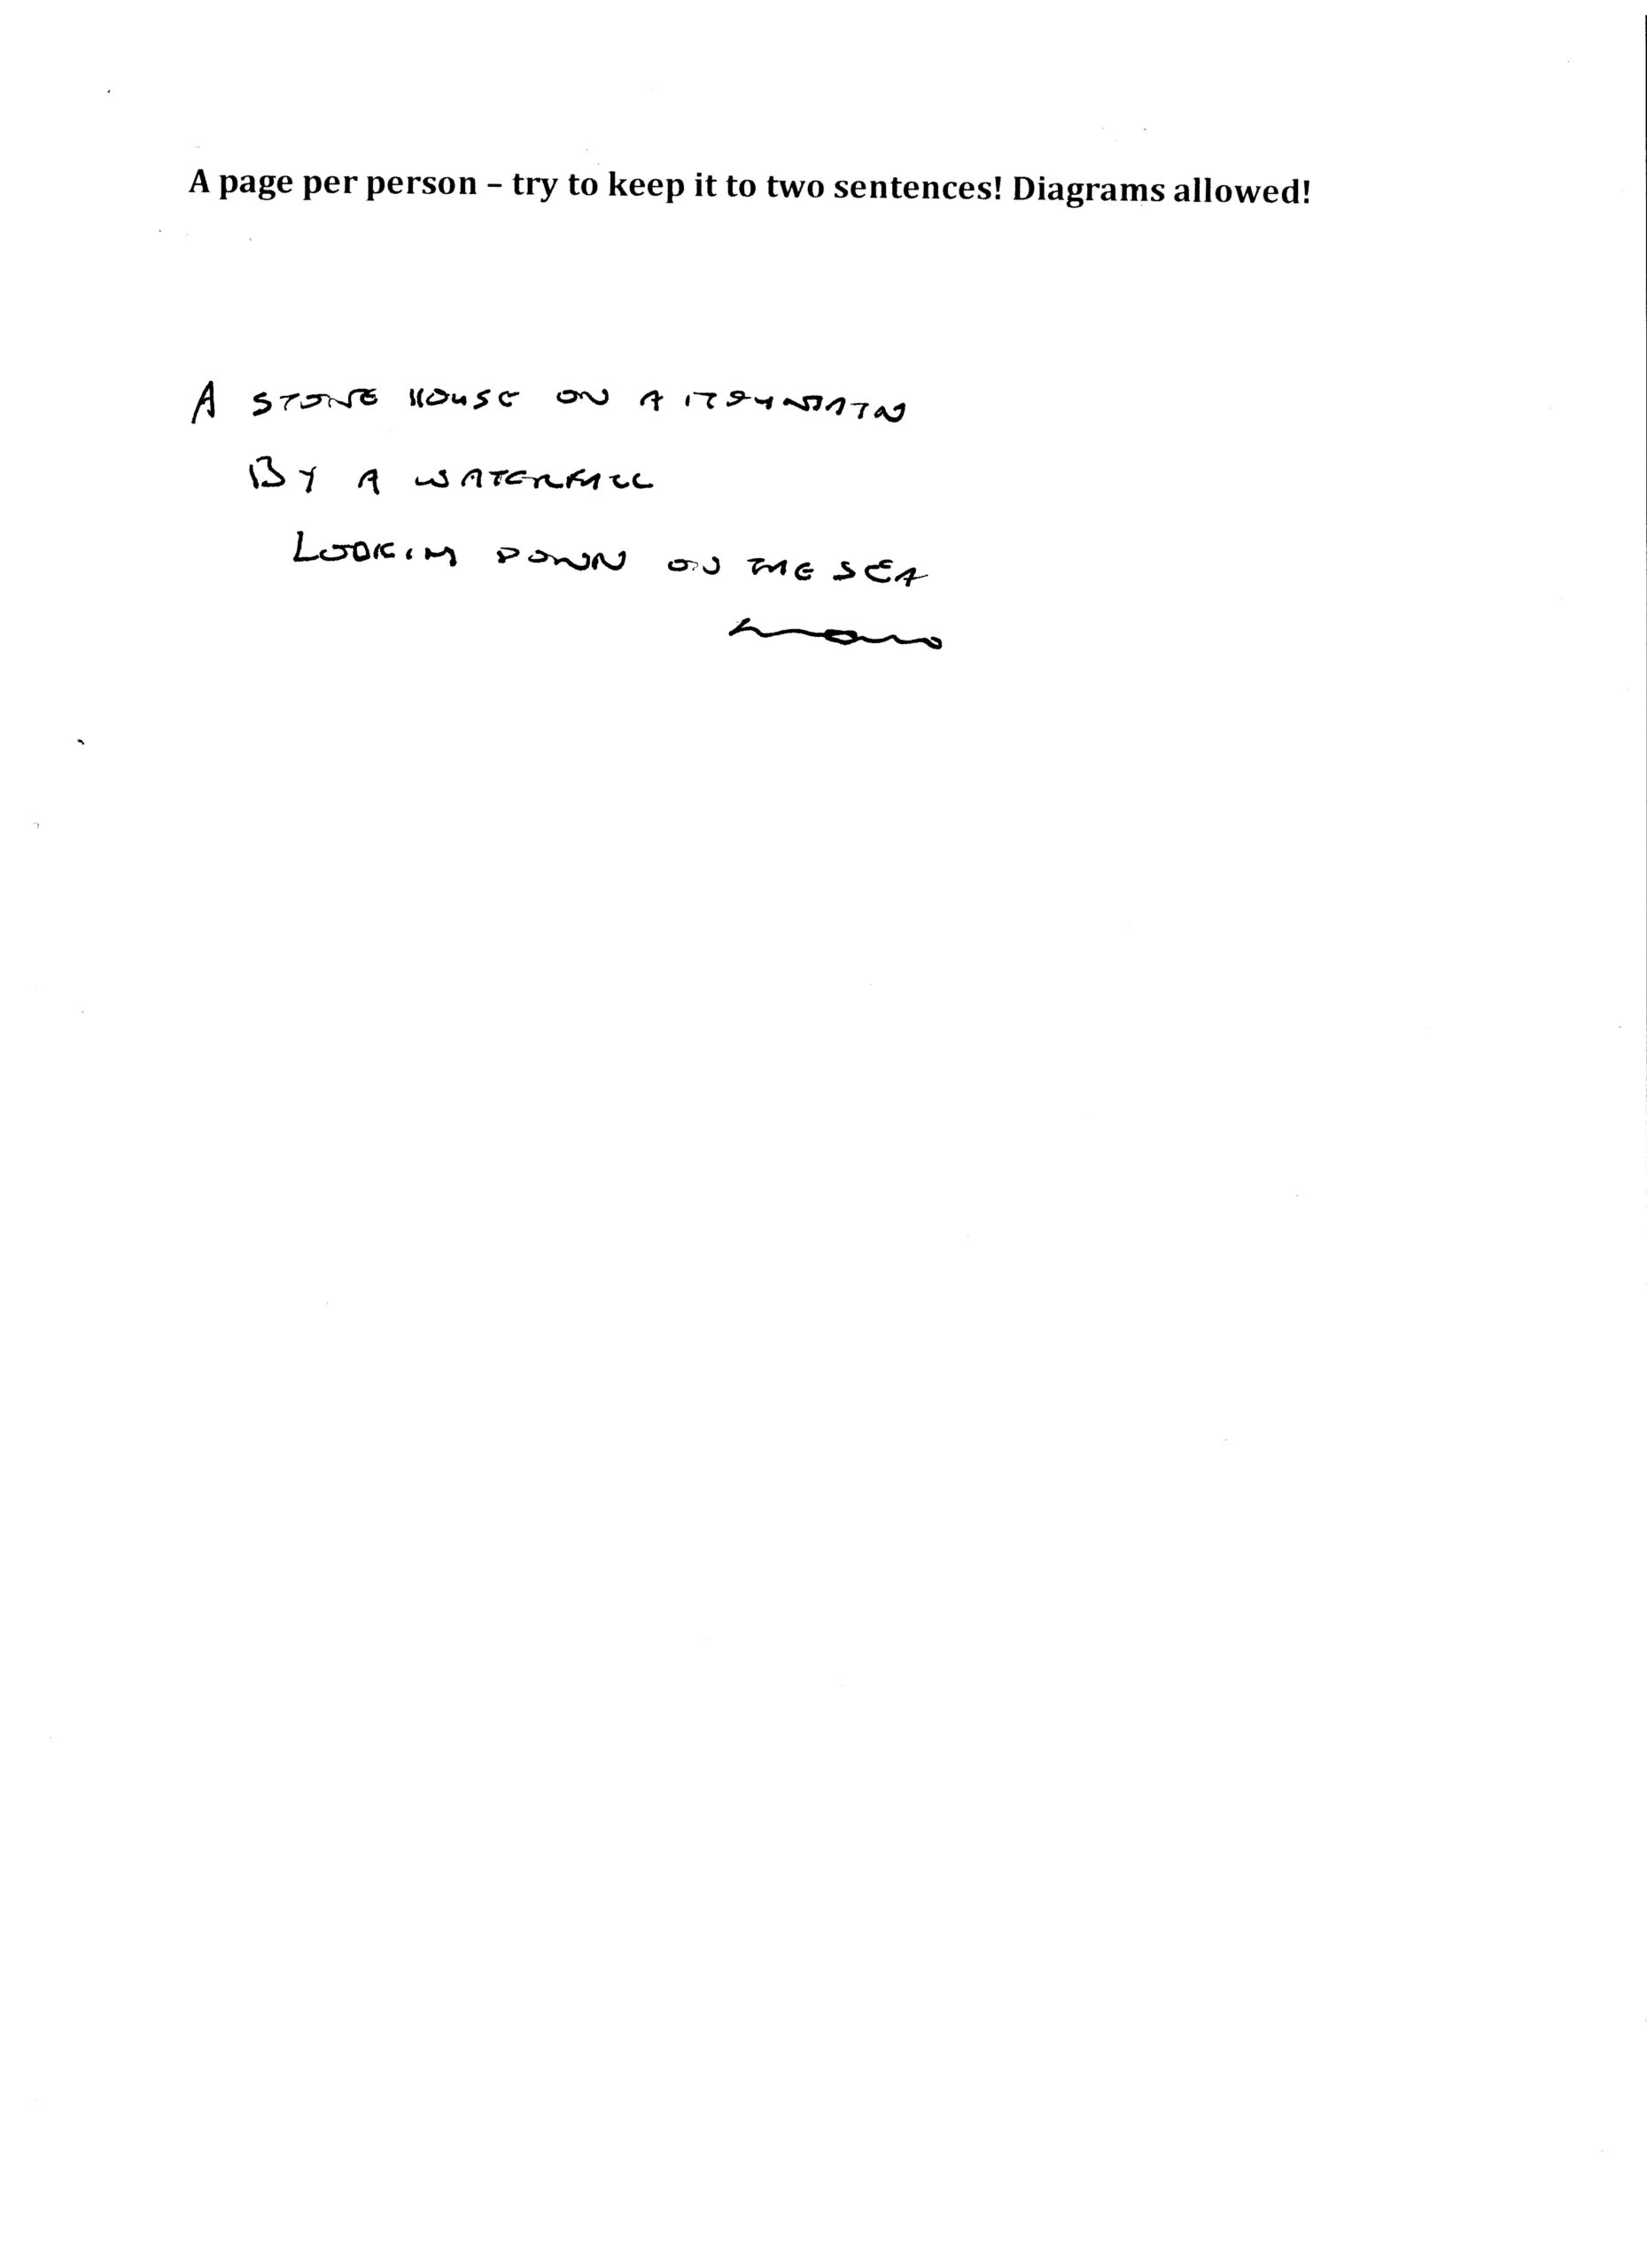 A page per person – try to keep it to two sentences! Diagrams allowed!
A STONE HOUSE ON A MOUNTAIN
BY A WATERFALL
LOOKING DOWN ON THE SEA